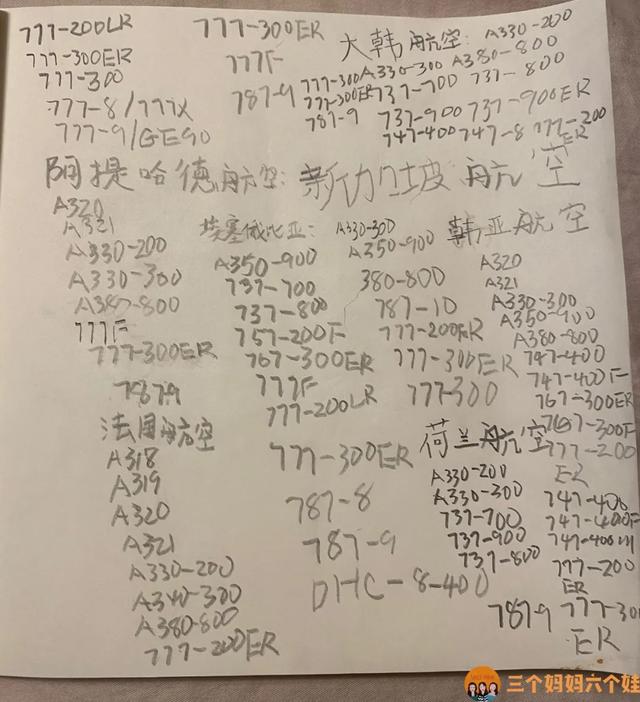 777-200LR
777-300ER
777-300
777-8/777X
777-9/GE90
777-300ER
777F
787-9
大韩航空:
A330-200
777-300
A330-300
A380-800
777-300ER
737-700
737-800
787-9
737-900
737-900ER
747-400
747-8
777-200
ER
阿提哈德航空:
A320
A321
A330-200
A330-300
A380-800
777F
777-300ER
787-9
法国航空
A318
A319
A320
A321
A330-200
A340-300
A380-800
777-200ER
埃塞俄比亚:
A350-900
737-700
737-800
757-200F
767-300ER
777F
777-200LR
777-300ER
787-8
787-9
DHC-8-400
新加坡航空
A330-300
A350-900
380-800
787-10
777-200ER
777-300ER
777-300
韩亚航空
A320
A321
A330-300
A350-900
A380-800
747-400
747-400F
767-300ER
767-300F
777-200
ER
荷兰航空
A330-200
A330-300
737-700
737-900
737-800
747-400
747-400F
747-400M
777-200
ER
787-9
777-300
ER
三个妈妈六个娃